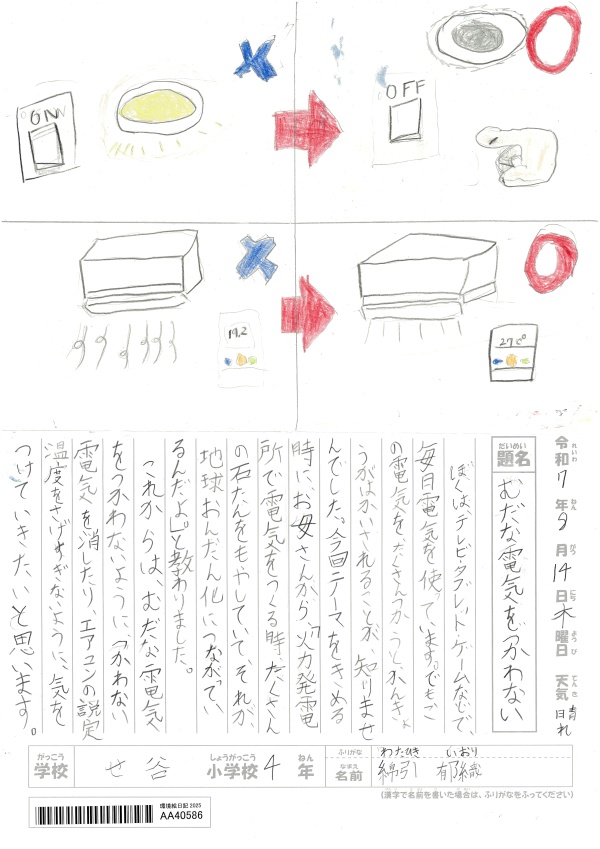 ON
OFF
19.2
27℃
令和7年8月14日木曜日 天気 晴れ
れいわ ねん がつ にち ようび てんき
だいめい
題名
むだな電気をつかわない
ぼくはテレビ・タブレット・ゲームなどで、
毎日電気を使っています。でもこ
の電気をたくさんつかうと、かんきょ
うがはかいされることが、知りませ
んでした。今回テーマをきめる
時に、お母さんから、「火力発電
所で電気をつくる時、たくさん
の石たんをもやしていて、それが、
地球おんだん化につながってい
るんだよ」と教わりました。
これからは、むだな電気
をつかわないように、つかわない
電気を消したり、エアコンの説定
温度をさげすぎないように、気を
つけていきたいと思います。
がっこう しょうがっこう ねん
学校 せ谷 小学校 4 年
ふりがな わたひき いおり
なまえ
名前 綿引 郁織
(漢字で名前を書いた場合は、ふりがなをふってください)
環境絵日記 2025
AA40586